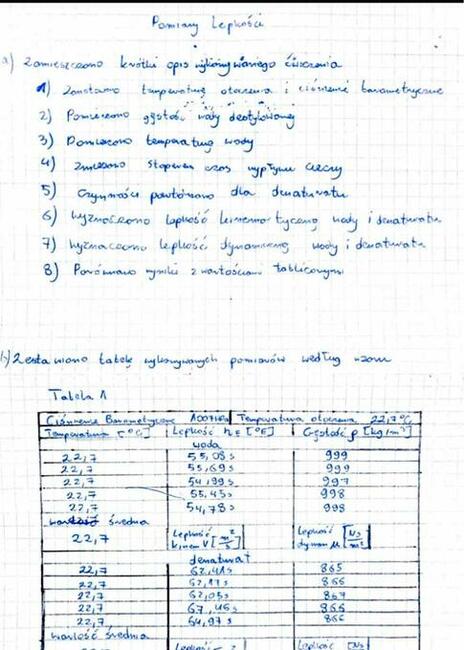 Pomiary Lepkości
a) Zamieszczono krótki opis wykonywanego ćwiczenia
1) Zanotowano temperaturę otoczenia i ciśnienie barometryczne
2) Pomierzono gęstość wody destylowanej
3) Pomierzono temperaturę wody
4) Zmierzono stoperem czas wypływu cieczy
5) Czynności powtórzono dla denaturatu
6) Wyznaczono lepkość kinematyczną wody i denaturatu
7) Wyznaczono lepkość dynamiczną wody i denaturatu
8) Porównano wyniki z wartościami tablicowymi
b) Zestawiono tabelę wykonywanych pomiarów według wzoru
Tabela 1
Ciśnienie Barometryczne Temperatura otoczenia 22,7°C
Temperatura [°C] Lepkość n E [°E] Gęstość ρ [kg/m³]
woda
22,7 55,08s 999
22,7 55,69s 999
22,7 54,99s 997
22,7 55,45s 998
22,7 54,78s 998
wartość średnia
22,7 Lepkość kinem V [m²/s] Lepkość dynam μ [Ns/m²]
denaturat
22,7 62,41s 865
22,7 62,17s 866
22,7 62,05s 867
22,7 67,46s 866
22,7 64,97s 866
wartość średnia
Lepkość Lepkość [Ns